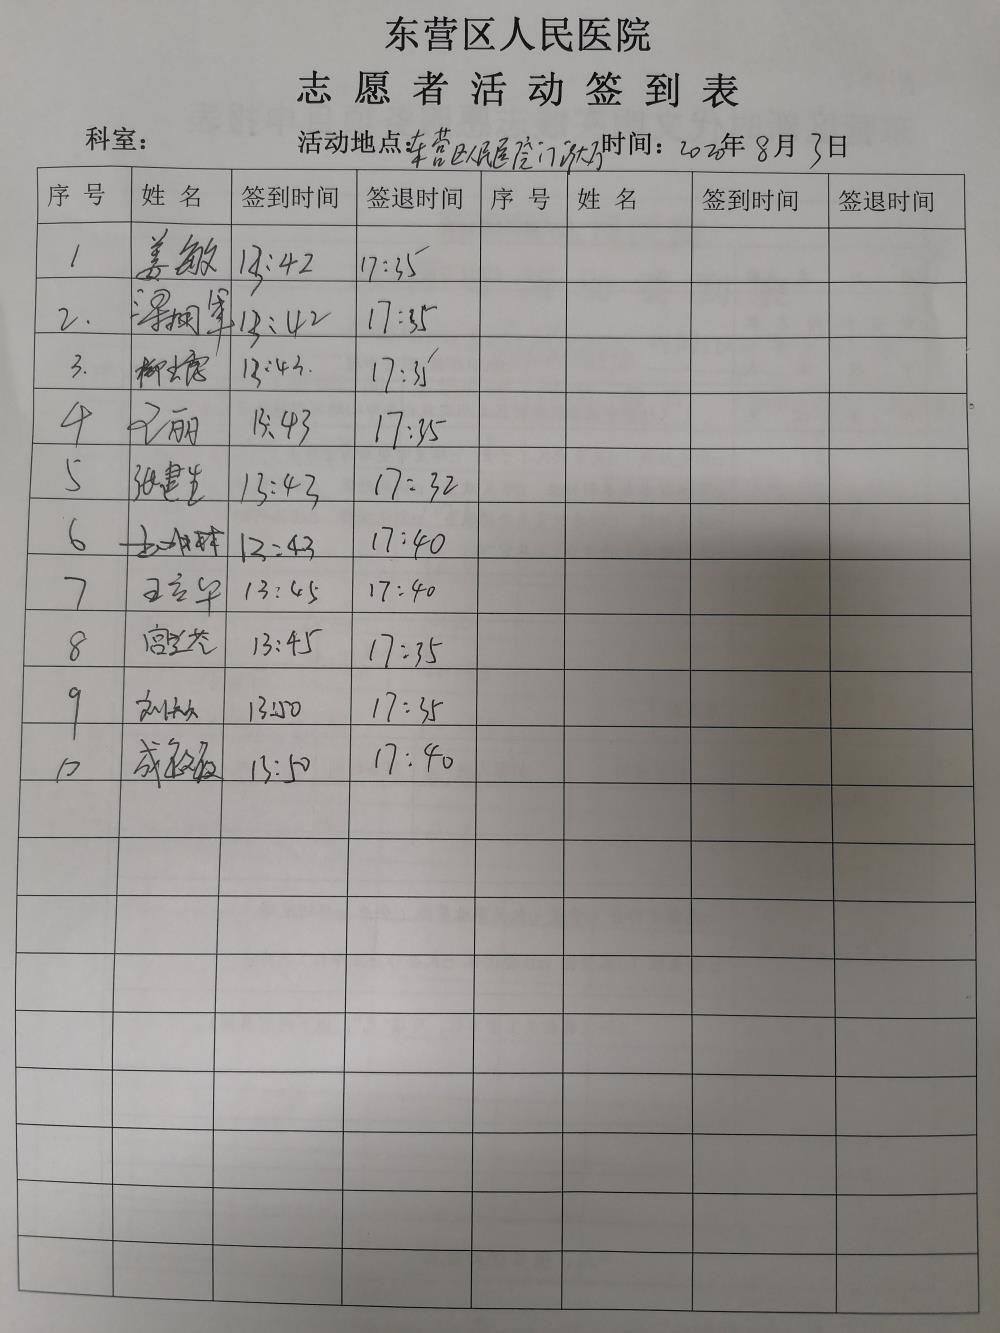 东营区人民医院
志愿者活动签到表
科室： 活动地点：东营区人民医院门诊大厅 时间：2020年8月3日
序号 姓名 签到时间 签退时间 序号 姓名 签到时间 签退时间
1 姜敏 13:42 17:35
2. 军 13:42 17:35
3. 13:43. 17:35
4 丽 13:43 17:35
5 张建生 13:43 17:32
6 13:43 17:40
7 王立华 13:45 17:40
8 13:45 17:35
9 刘 13:50 17:35
10 成 13:50 17:40